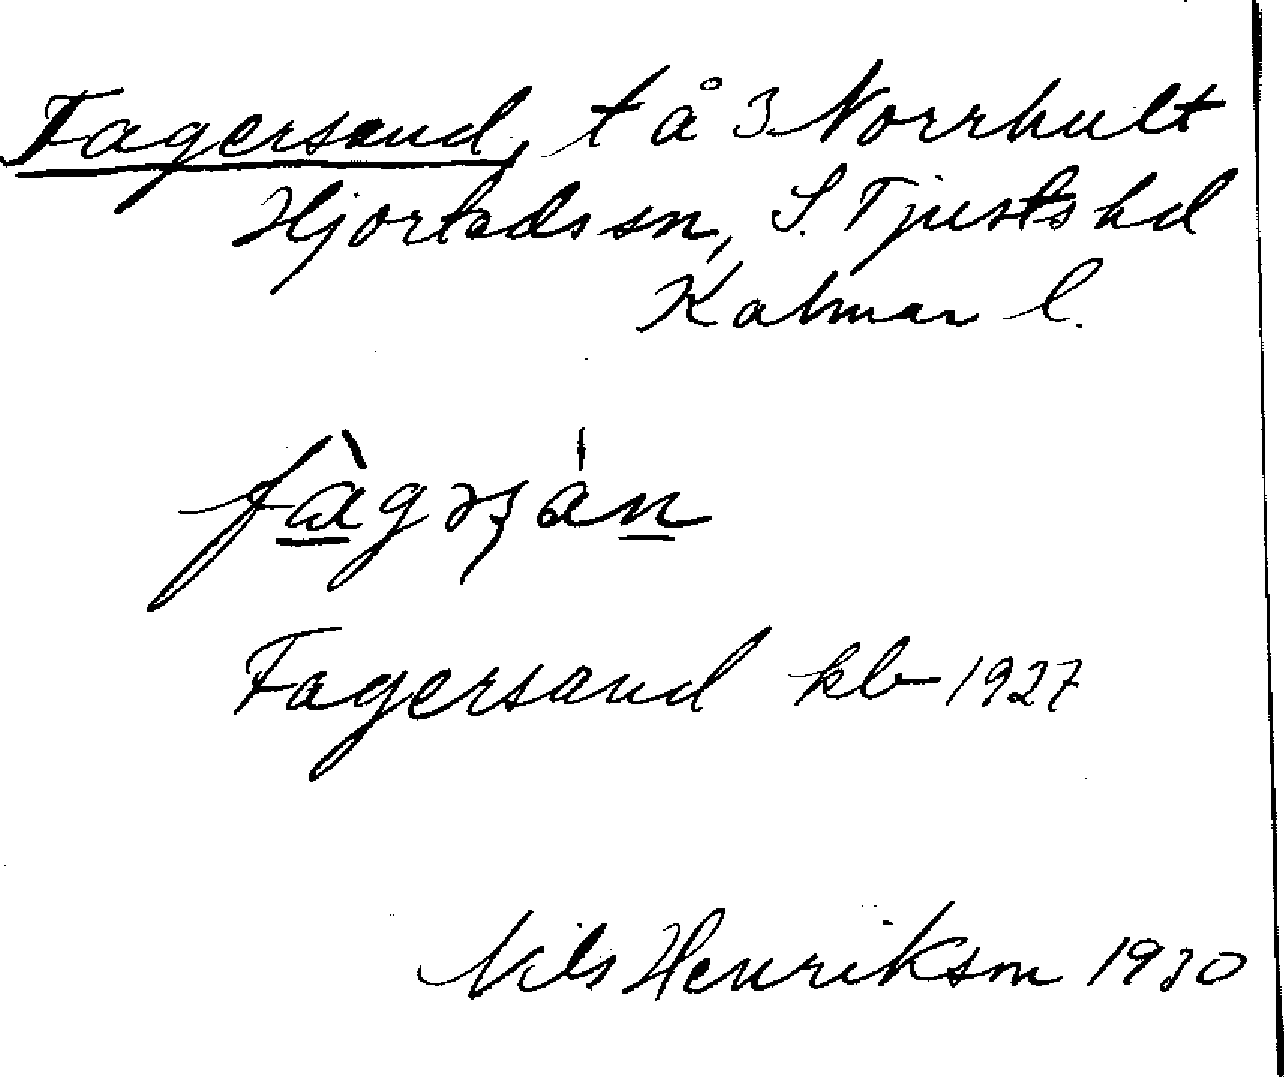 Fagersand, t å 3 Norrhult
Hjorteds sn, S. Tjusts hd
Kalmar l.
Fagersand kb 1927
Nils Henrikson 1930